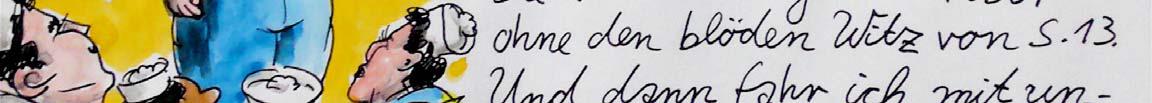 ohne den blöden Witz von S. 13.
Und dann fahr ich mit un-